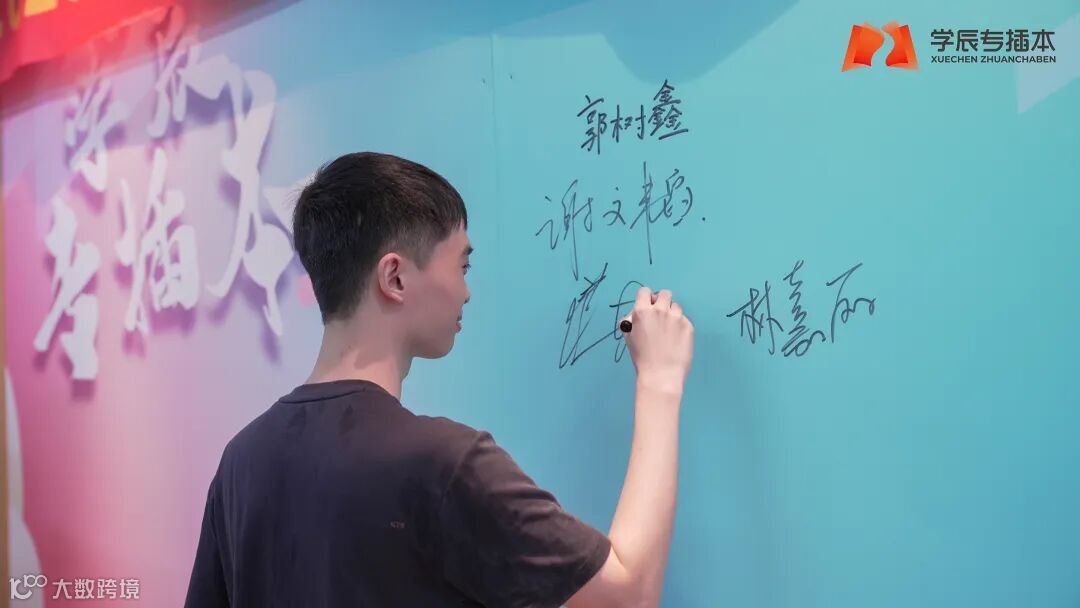 学辰专插本
XUECHEN ZHUANCHABEN
学辰
专插本
郭树鑫
谢文
林嘉丽
大数跨境